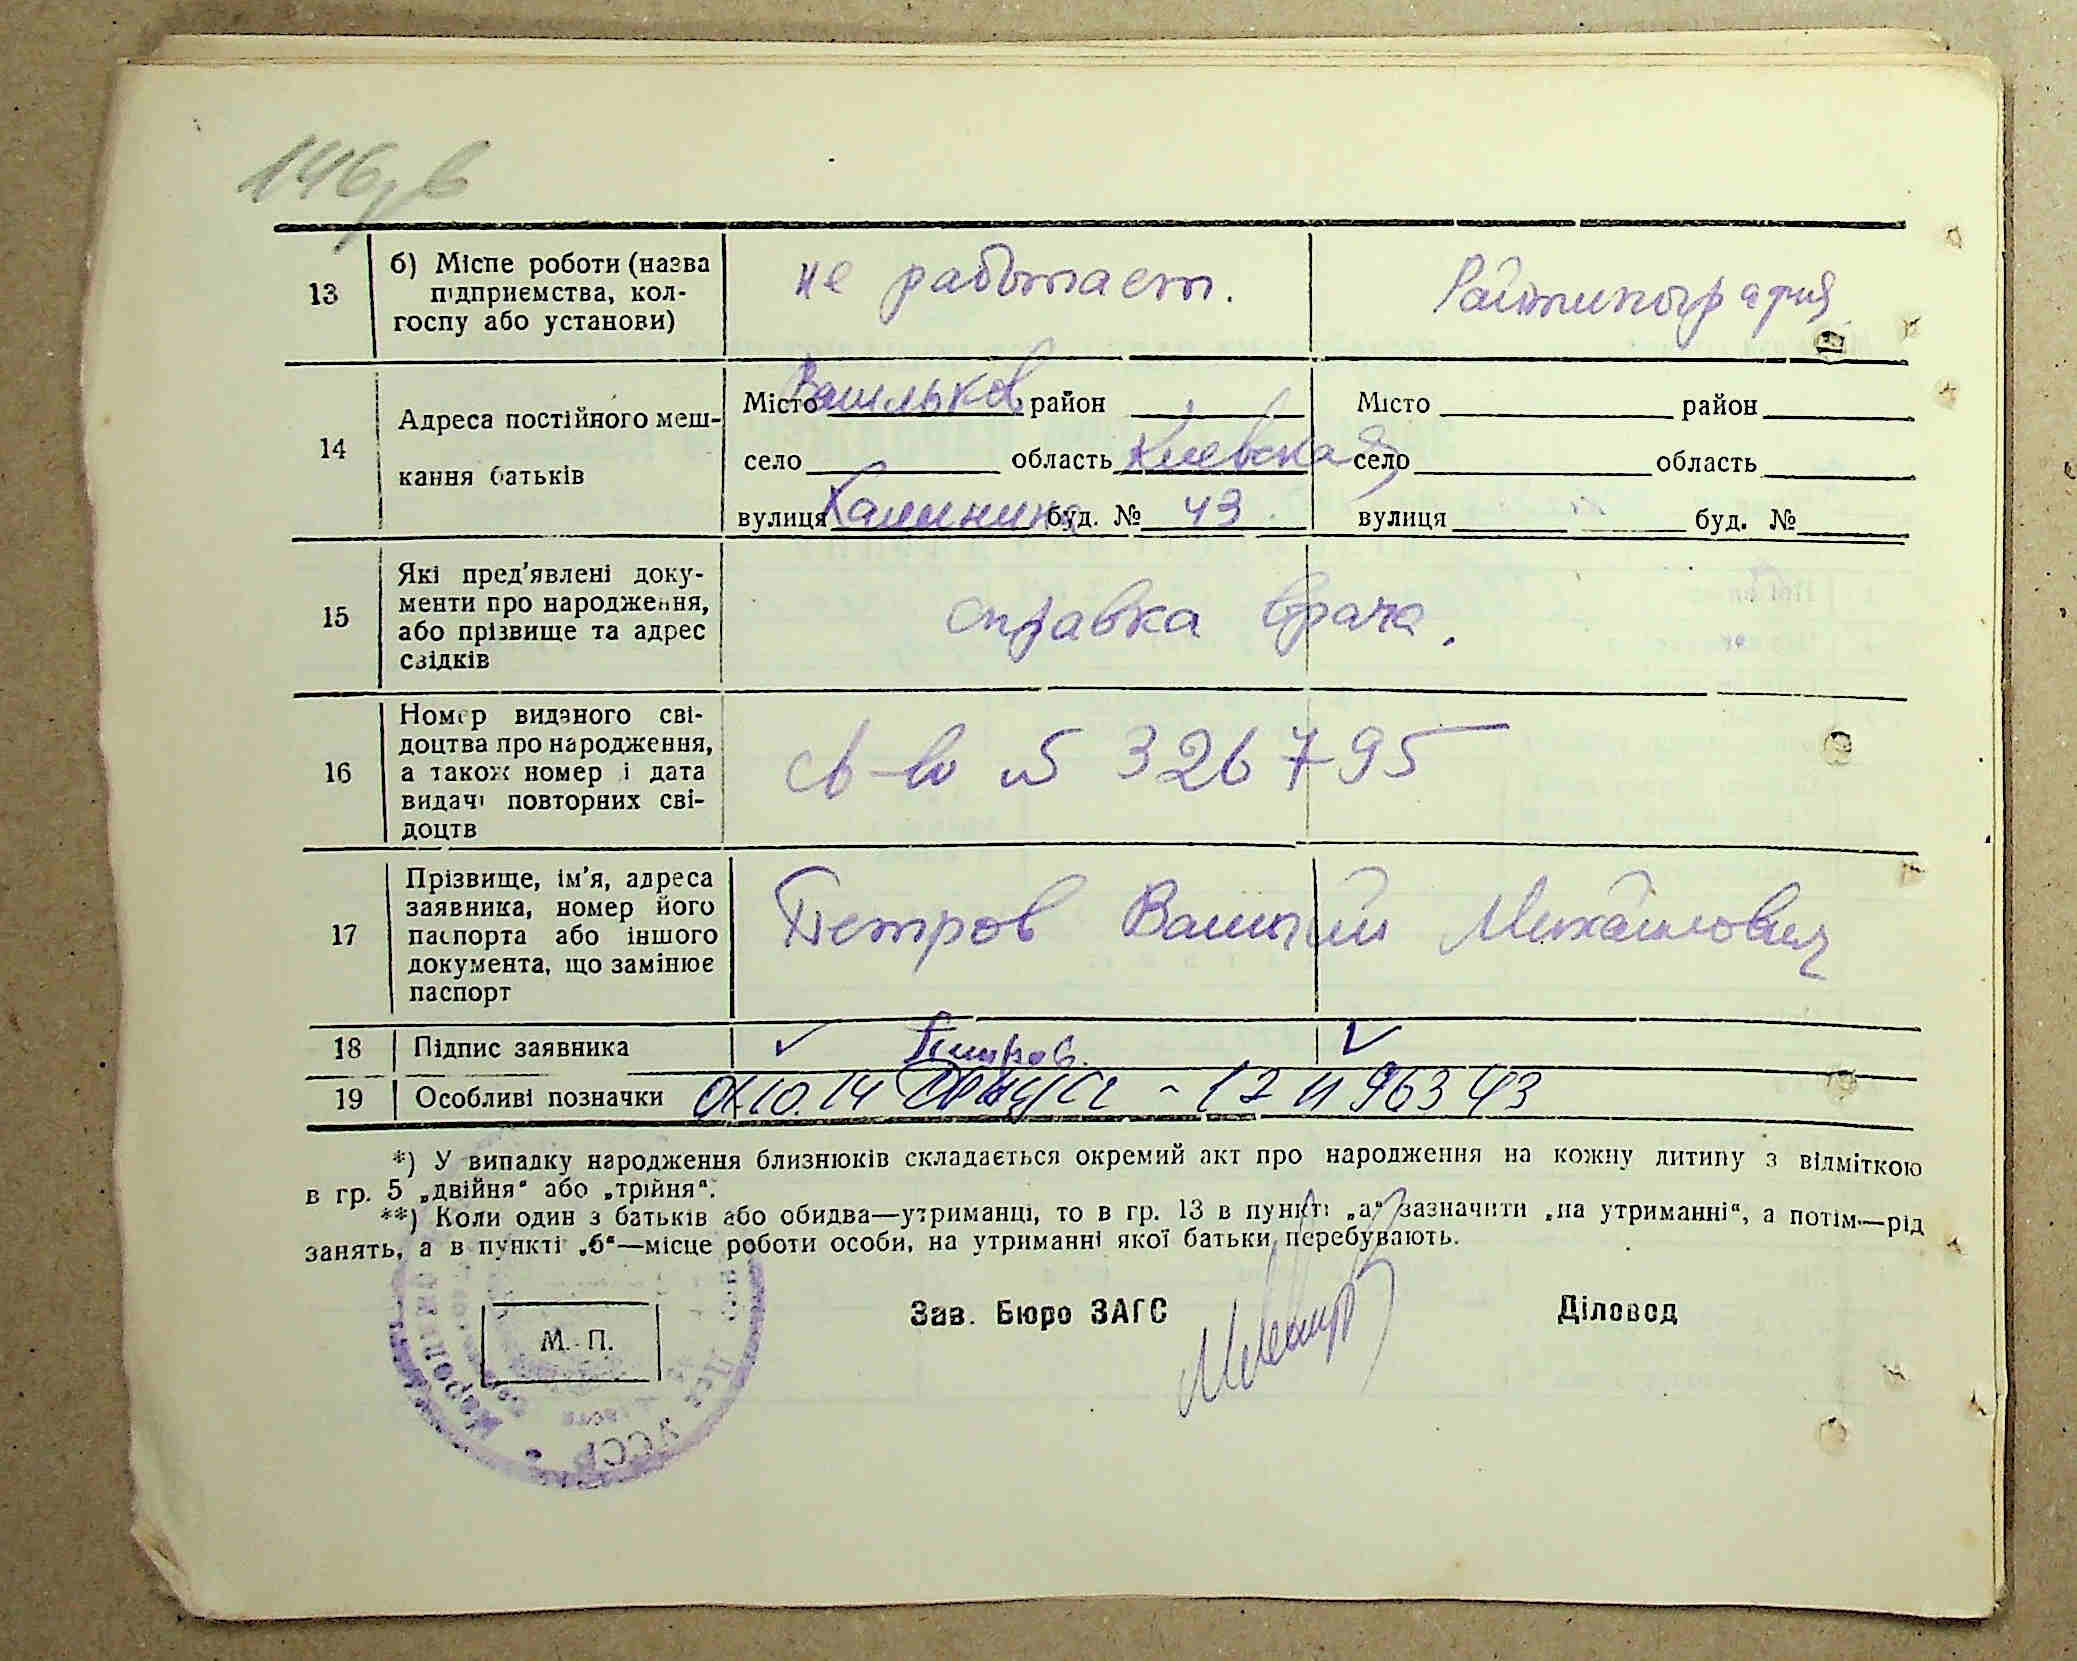 146,в
13
б) Місце роботи (назва
підприємства, кол-
госпу або установи)
не работает.
Райтипография
14
Адреса постійного меш-
кання батьків
Місто Васильков район
село область Киевская
вулиця Калинина буд. № 43
Місто район
село область
вулиця буд. №
15
Які пред'явлені доку-
менти про народження,
або прізвище та адрес
свідків
справка врача.
16
Номер виданого сві-
доцтва про народження,
а також номер і дата
видачі повторних сві-
доцтв
св-во № 326795
17
Прізвище, ім'я, адреса
заявника, номер його
паспорта або іншого
документа, що замінює
паспорт
Петров Василий Михайлович
18
Підпис заявника
✓ Петров. ✓
19
Особливі позначки
*) У випадку народження близнюків складається окремий акт про народження на кожну дитину з відміткою
в гр. 5 „двійня" або „трійня".
**) Коли один з батьків або обидва—утриманці, то в гр. 13 в пункті „а" зазначити „на утриманні", а потім—рід
занять, а в пункті „б"—місце роботи особи, на утриманні якої батьки перебувають.
М. П.
Зав. Бюро ЗАГС
Діловод